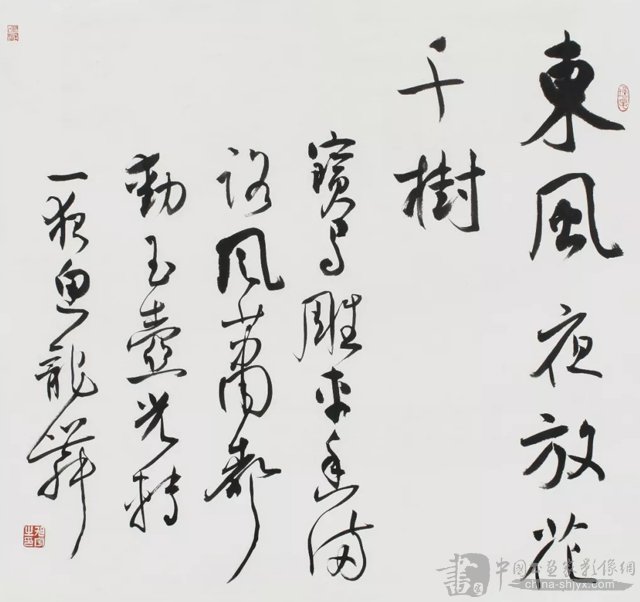 東風夜放花
千樹
寶馬雕車香滿
路鳳簫聲
動玉壺光轉
一夜魚龍舞
中国书画家影像網
china-shjyx.com